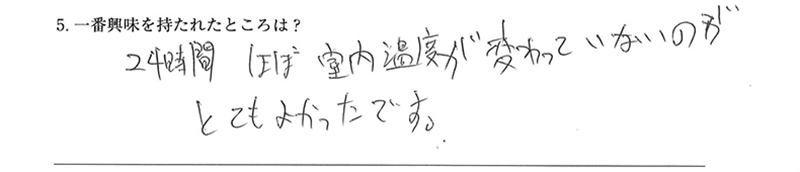 5. 一番興味を持たれたところは？
24時間 ほぼ 室内温度が変わっていないのが
とてもよかったです。